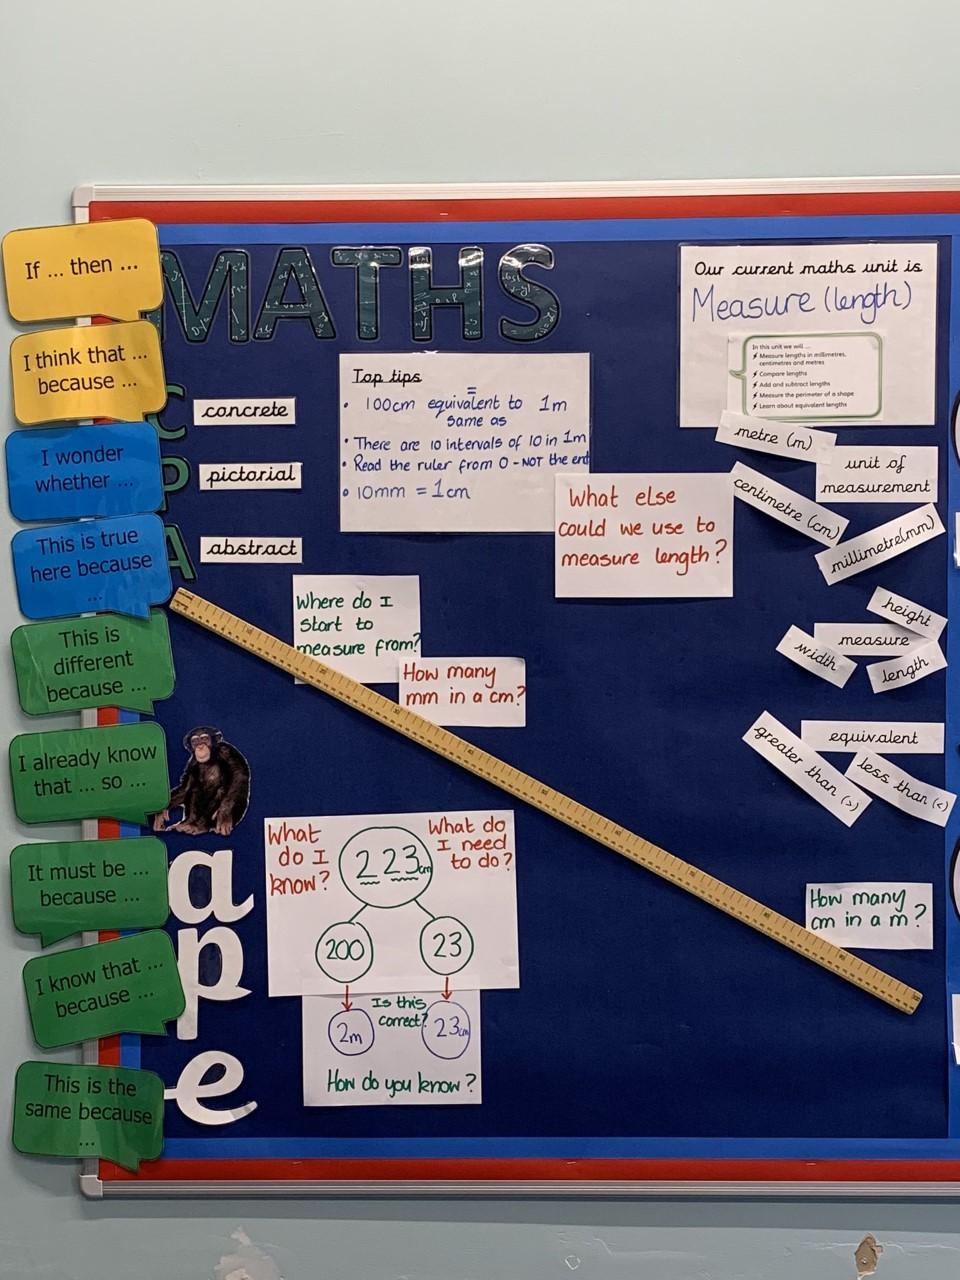 If ... then ...
I think that ...
because ...
I wonder
whether ...
This is true
here because
...
This is
different
because ...
I already know
that ... so ...
It must be ...
because ...
I know that ...
because ...
This is the
same because
...
MATHS
C
concrete
P
pictorial
A
abstract
Top tips
=
• 100cm equivalent to 1m
same as
• There are 10 intervals of 10 in 1m
• Read the ruler from 0 - NOT the end
• 10mm = 1cm
What else
could we use to
measure length?
Where do I
start to
measure from?
How many
mm in a cm?
How many
cm in a m?
ape
What
do I
know?
223cm
What do
I need
to do?
200
23
Is this
correct?
2m
23cm
How do you know?
Our current maths unit is
Measure (length)
In this unit we will ...
Measure lengths in millimetres,
centimetres and metres
Compare lengths
Add and subtract lengths
Measure the perimeter of a shape
Learn about equivalent lengths
metre (m)
unit of
measurement
centimetre (cm)
millimetre(mm)
height
measure
width
length
equivalent
greater than (>)
less than (<)